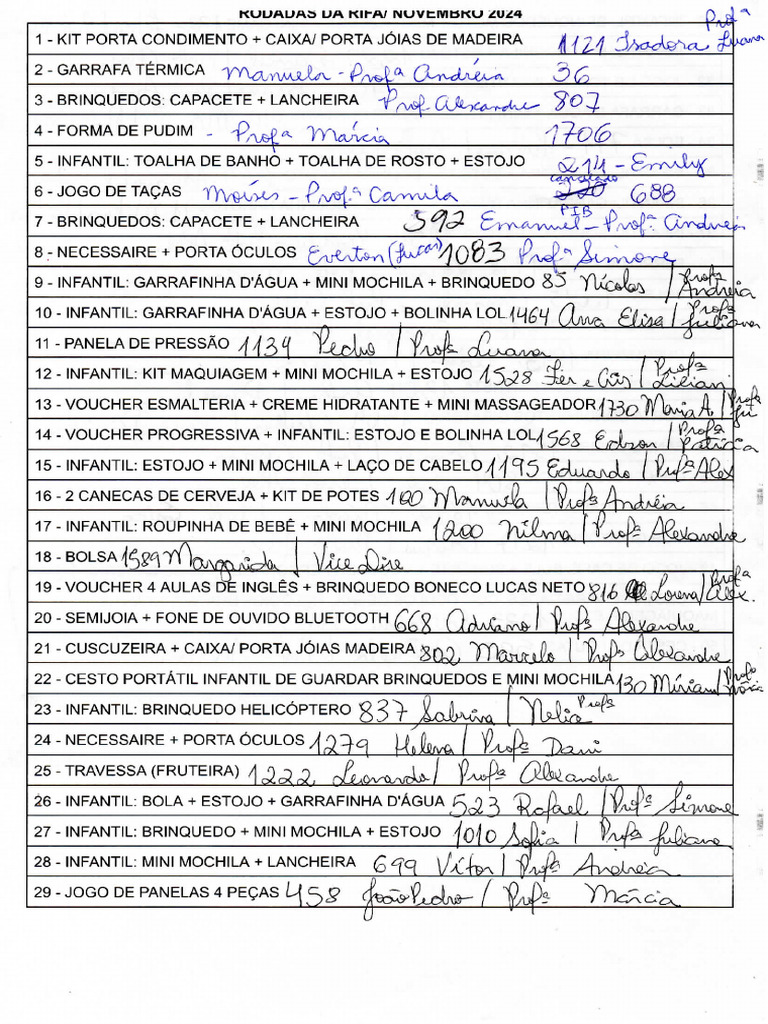 RODADAS DA RIFA/ NOVEMBRO 2024
1 - KIT PORTA CONDIMENTO + CAIXA/ PORTA JÓIAS DE MADEIRA 1121 Isadora Profª Luana
2 - GARRAFA TÉRMICA Manuela - Profª Andréia 36
3 - BRINQUEDOS: CAPACETE + LANCHEIRA Prof. Alexandre 807
4 - FORMA DE PUDIM - Profª Márcia 1706
5 - INFANTIL: TOALHA DE BANHO + TOALHA DE ROSTO + ESTOJO 214 - Emily
6 - JOGO DE TAÇAS Moíses - Profª Camila cancelado 220 688
7 - BRINQUEDOS: CAPACETE + LANCHEIRA 592 Emanuel - PIB Profª Andreia
8 - NECESSAIRE + PORTA ÓCULOS Everton (Lucas) 1083 Profª Simone
9 - INFANTIL: GARRAFINHA D'ÁGUA + MINI MOCHILA + BRINQUEDO 85 Nícolas / Profª Andreia
10 - INFANTIL: GARRAFINHA D'ÁGUA + ESTOJO + BOLINHA LOL 1464 Ana Elisa / Profª Juliana
11 - PANELA DE PRESSÃO 1134 Pedro / Profª Luana
12 - INFANTIL: KIT MAQUIAGEM + MINI MOCHILA + ESTOJO 1528 Fer e Cris / Profª Lilian
13 - VOUCHER ESMALTERIA + CREME HIDRATANTE + MINI MASSAGEADOR 1730 Maria A. / Profª Ju
14 - VOUCHER PROGRESSIVA + INFANTIL: ESTOJO E BOLINHA LOL 1568 Edson / Profª Patrícia
15 - INFANTIL: ESTOJO + MINI MOCHILA + LAÇO DE CABELO 1195 Eduardo / Profª Alex
16 - 2 CANECAS DE CERVEJA + KIT DE POTES 100 Manuela / Profª Andréia
17 - INFANTIL: ROUPINHA DE BEBÊ + MINI MOCHILA 1200 Nilma / Profª Alexandre
18 - BOLSA 1589 Margarida / Vice Dire
19 - VOUCHER 4 AULAS DE INGLÊS + BRINQUEDO BONECO LUCAS NETO 816 Lorena / Profª Alex.
20 - SEMIJOIA + FONE DE OUVIDO BLUETOOTH 668 Adriano / Profº Alexandre
21 - CUSCUZEIRA + CAIXA/ PORTA JÓIAS MADEIRA 802 Marcelo / Profº Alexandre
22 - CESTO PORTÁTIL INFANTIL DE GUARDAR BRINQUEDOS E MINI MOCHILA 130 Míriam / Profª Márcia
23 - INFANTIL: BRINQUEDO HELICÓPTERO 837 Sabrina / Nelia Profª
24 - NECESSAIRE + PORTA ÓCULOS 1279 Helena / Profª Dani
25 - TRAVESSA (FRUTEIRA) 1222 Leonardo / Profª Alexandre
26 - INFANTIL: BOLA + ESTOJO + GARRAFINHA D'ÁGUA 523 Rafael / Profª Simone
27 - INFANTIL: BRINQUEDO + MINI MOCHILA + ESTOJO 1010 Sofia / Profª Juliana
28 - INFANTIL: MINI MOCHILA + LANCHEIRA 699 Vítor / Profª Andréia
29 - JOGO DE PANELAS 4 PEÇAS 458 João Pedro / Profª Márcia